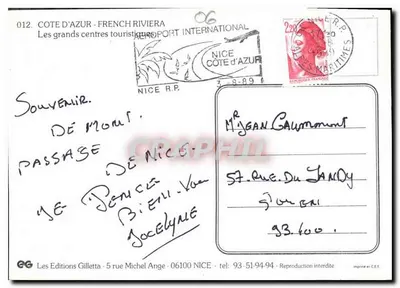 012. COTE D'AZUR - FRENCH RIVIERA
Les grands centres touristiques
06
AEROPORT INTERNATIONAL
NICE
CÔTE d'AZUR
NICE R.P.
-8-89
NICE R.P.
ALPES MARITIMES
2,20
SOUVENIR.
DE MONT.
PASSAGE
DE NICE.
JE PENSE
BIEN-VOU
JOCELYNE
MR JEAN
57. RUE DU LANDY
ST OUEN
93.400.
EG Les Editions Gilletta - 5 rue Michel Ange - 06100 NICE - tel: 93-51-94-94 - Reproduction interdite